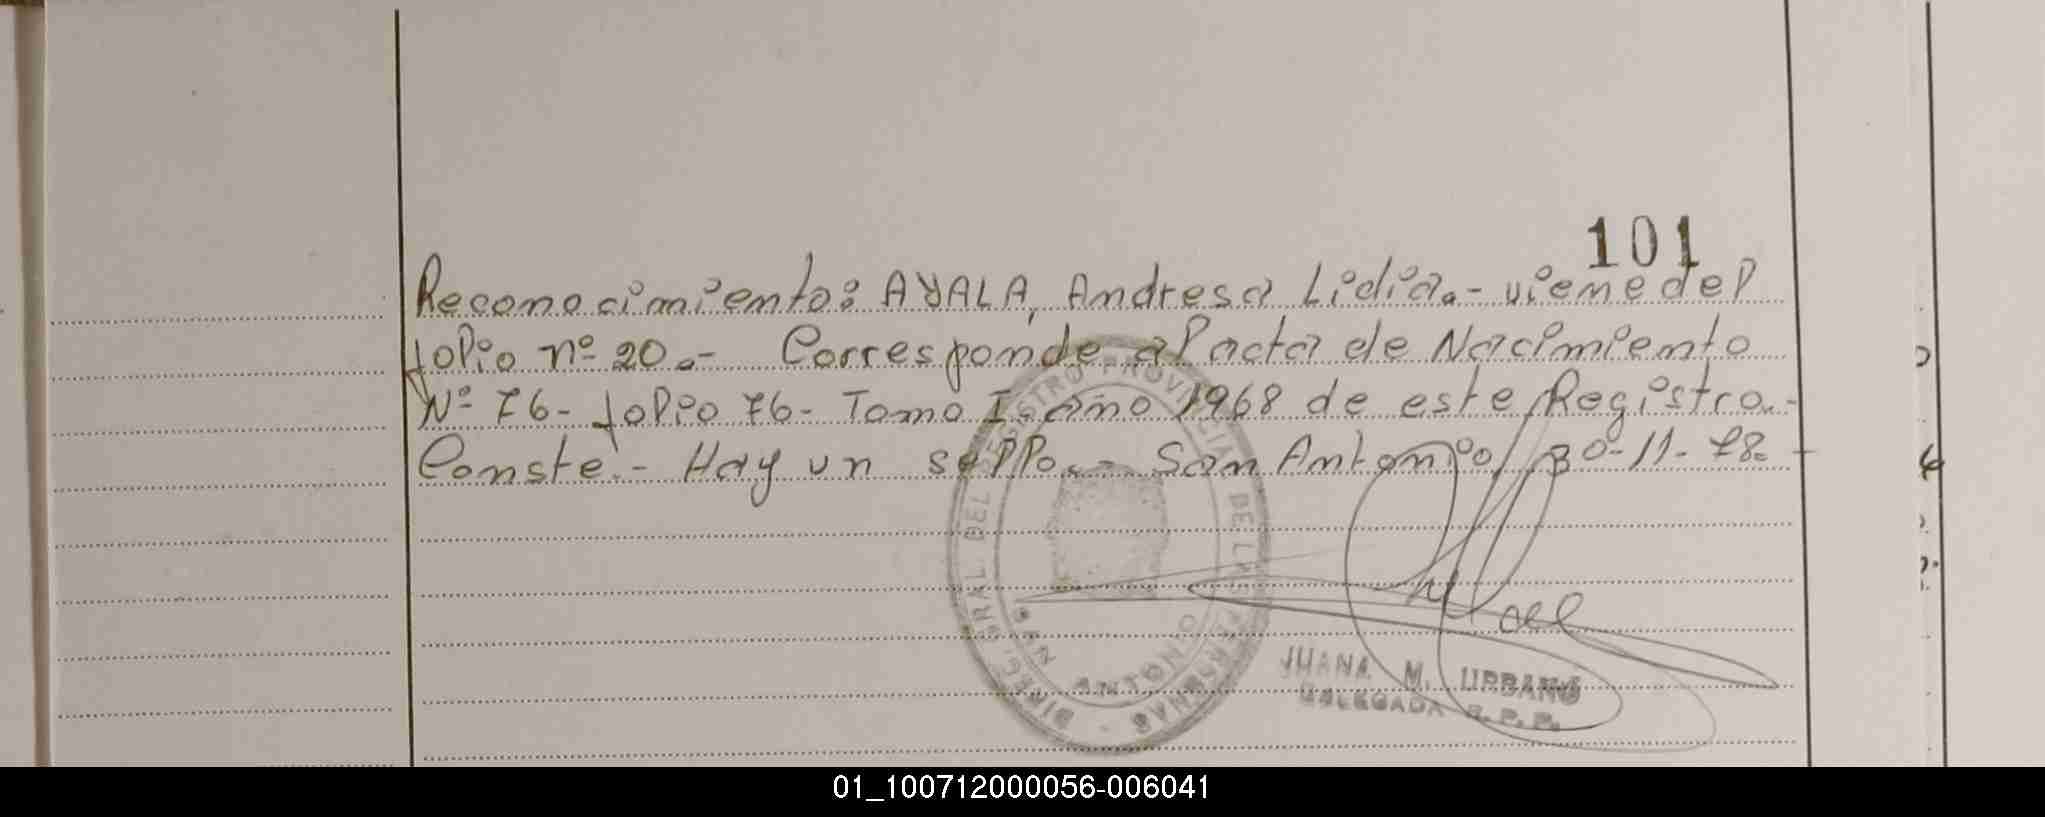 101
Reconocimiento: AYALA, Andresa Lidia.- viene del
folio nº 20.- Corresponde al acta de Nacimiento
Nº 76- folio 76- Tomo I- año 1968 de este Registro.-
Conste.- Hay un sello.- San Antonio, 30-11-78.-
DIREC. GRAL. DEL REGISTRO PROVINCIAL DE LAS PERSONAS -
SAN ANTONIO
JUANA M. URBANO
DELEGADA R. P. P.
01_100712000056-006041